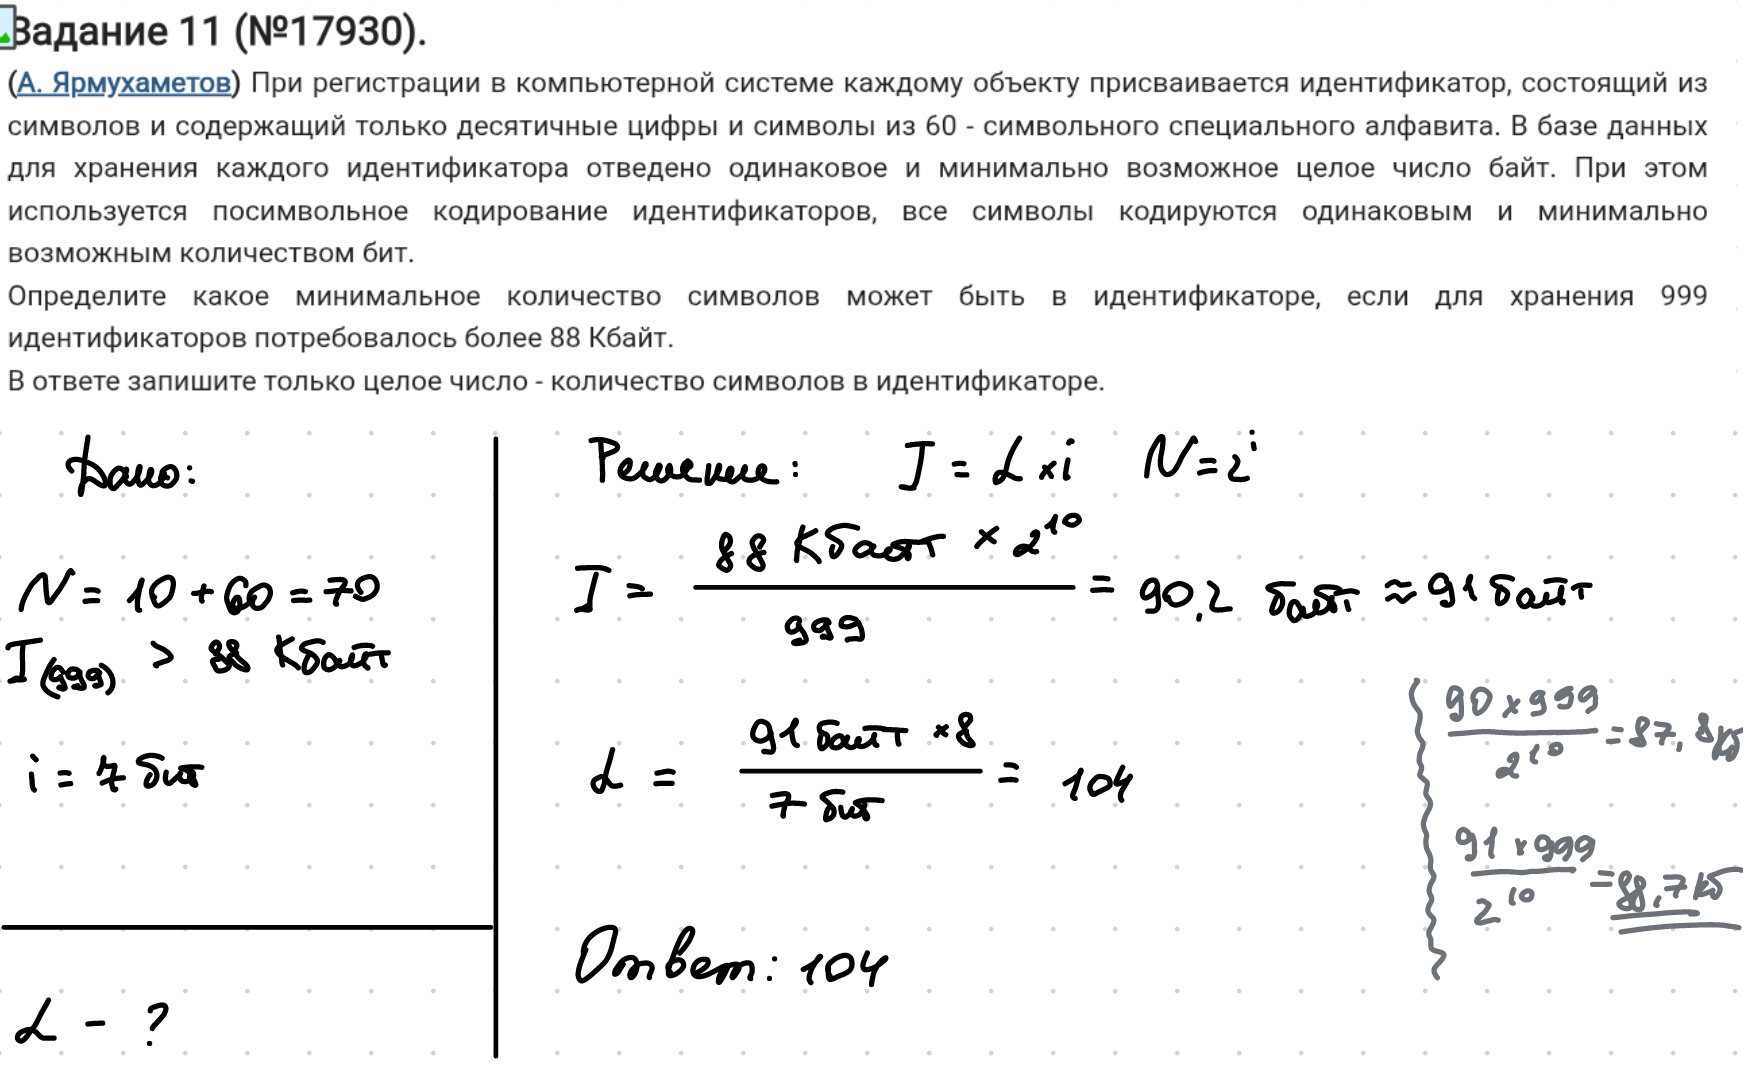 Задание 11 (№17930).
(А. Ярмухаметов) При регистрации в компьютерной системе каждому объекту присваивается идентификатор, состоящий из
символов и содержащий только десятичные цифры и символы из 60 - символьного специального алфавита. В базе данных
для хранения каждого идентификатора отведено одинаковое и минимально возможное целое число байт. При этом
используется посимвольное кодирование идентификаторов, все символы кодируются одинаковым и минимально
возможным количеством бит.
Определите какое минимальное количество символов может быть в идентификаторе, если для хранения 999
идентификаторов потребовалось более 88 Кбайт.
В ответе запишите только целое число - количество символов в идентификаторе.
Дано:
N = 10 + 60 = 70
I (999) > 88 Кбайт
i = 7 бит
L - ?
Решение: I = L × i N = 2^i
I = 88 Кбайт × 2^10 / 999 = 90,2 байт ≈ 91 байт
L = 91 байт × 8 / 7 бит = 104
Ответ: 104
90 × 999 / 2^10 = 87,8 Кб
91 × 999 / 2^10 = 88,7 Кб